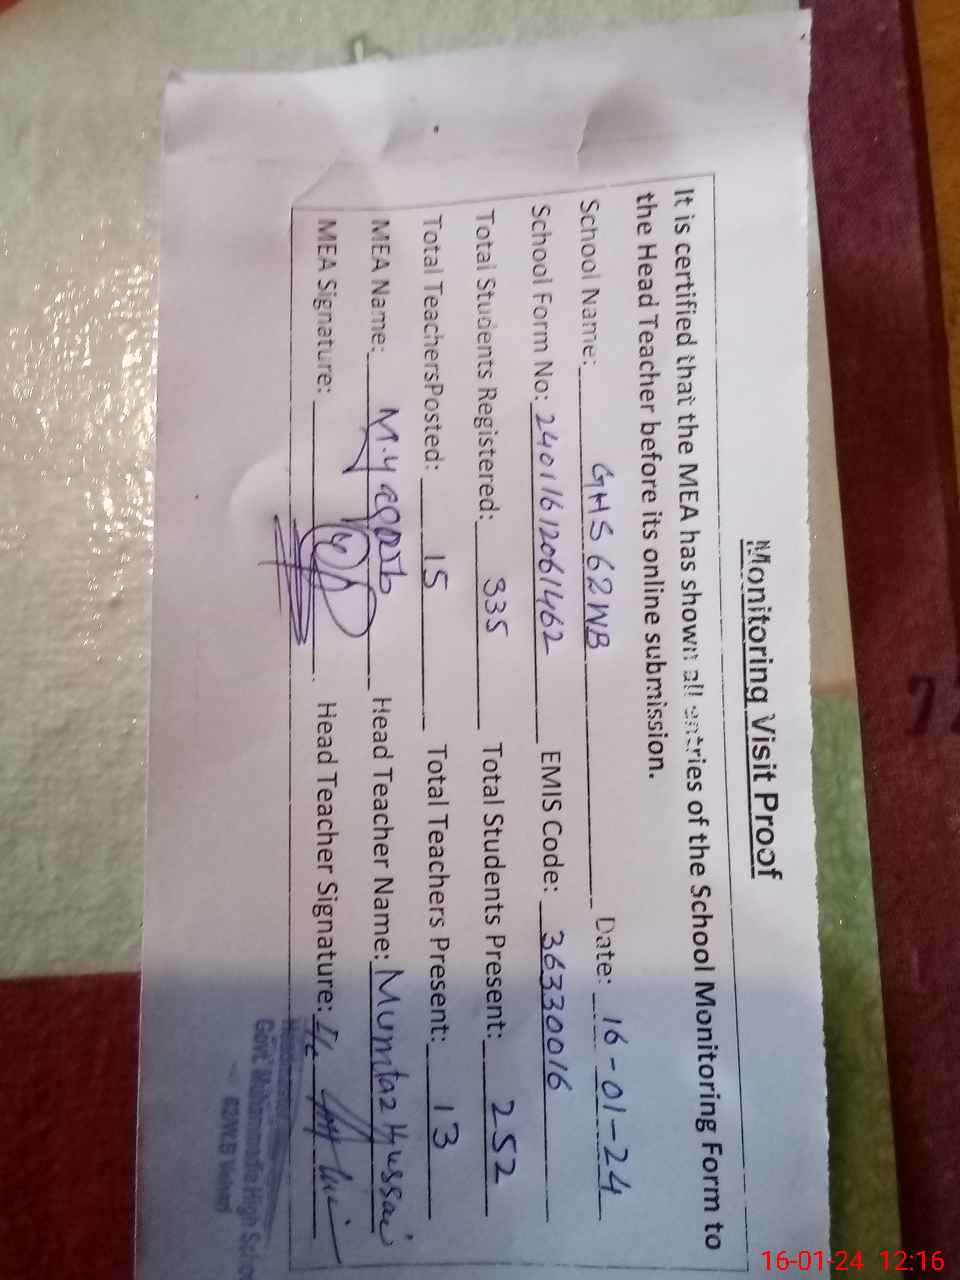 Monitoring Visit Proof
It is certified that the MEA has shown all entries of the School Monitoring Form to
the Head Teacher before its online submission.
School Name: GHS 62WB Date: 16-01-24
School Form No: 24011612061462 EMIS Code: 36330016
Total Students Registered: 335 Total Students Present: 252
Total TeachersPosted: 15 Total Teachers Present: 13
MEA Name: M.yaqoob Head Teacher Name: Mumtaz Hussai
MEA Signature: Head Teacher Signature:
Govt. High School
62/WB Vehari
16-01-24 12:16